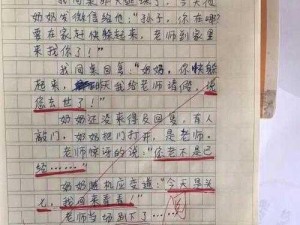 奶奶发微信给他：“孙子，你在哪
要在家赶快躲起来，老师到家里
来找你了！”
我回奶奶回复：“奶奶，你快躲
起来，昨天我给老师请假，说
您去世了！”
奶奶还没来得及回复，有人
敲门，奶奶把门打开，是老师。
老师惊讶的说：“你老不是已
经……”
奶奶随机应变道：“今天是头
七，我回来看看！”
老师当场倒下了……